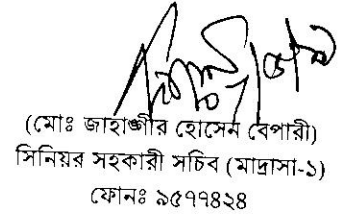 (মোঃ জাহাঙ্গীর হোসেন বেপারী)
সিনিয়র সহকারী সচিব (মাদ্রাসা-১)
ফোনঃ ৯৫৭৭৪২৪